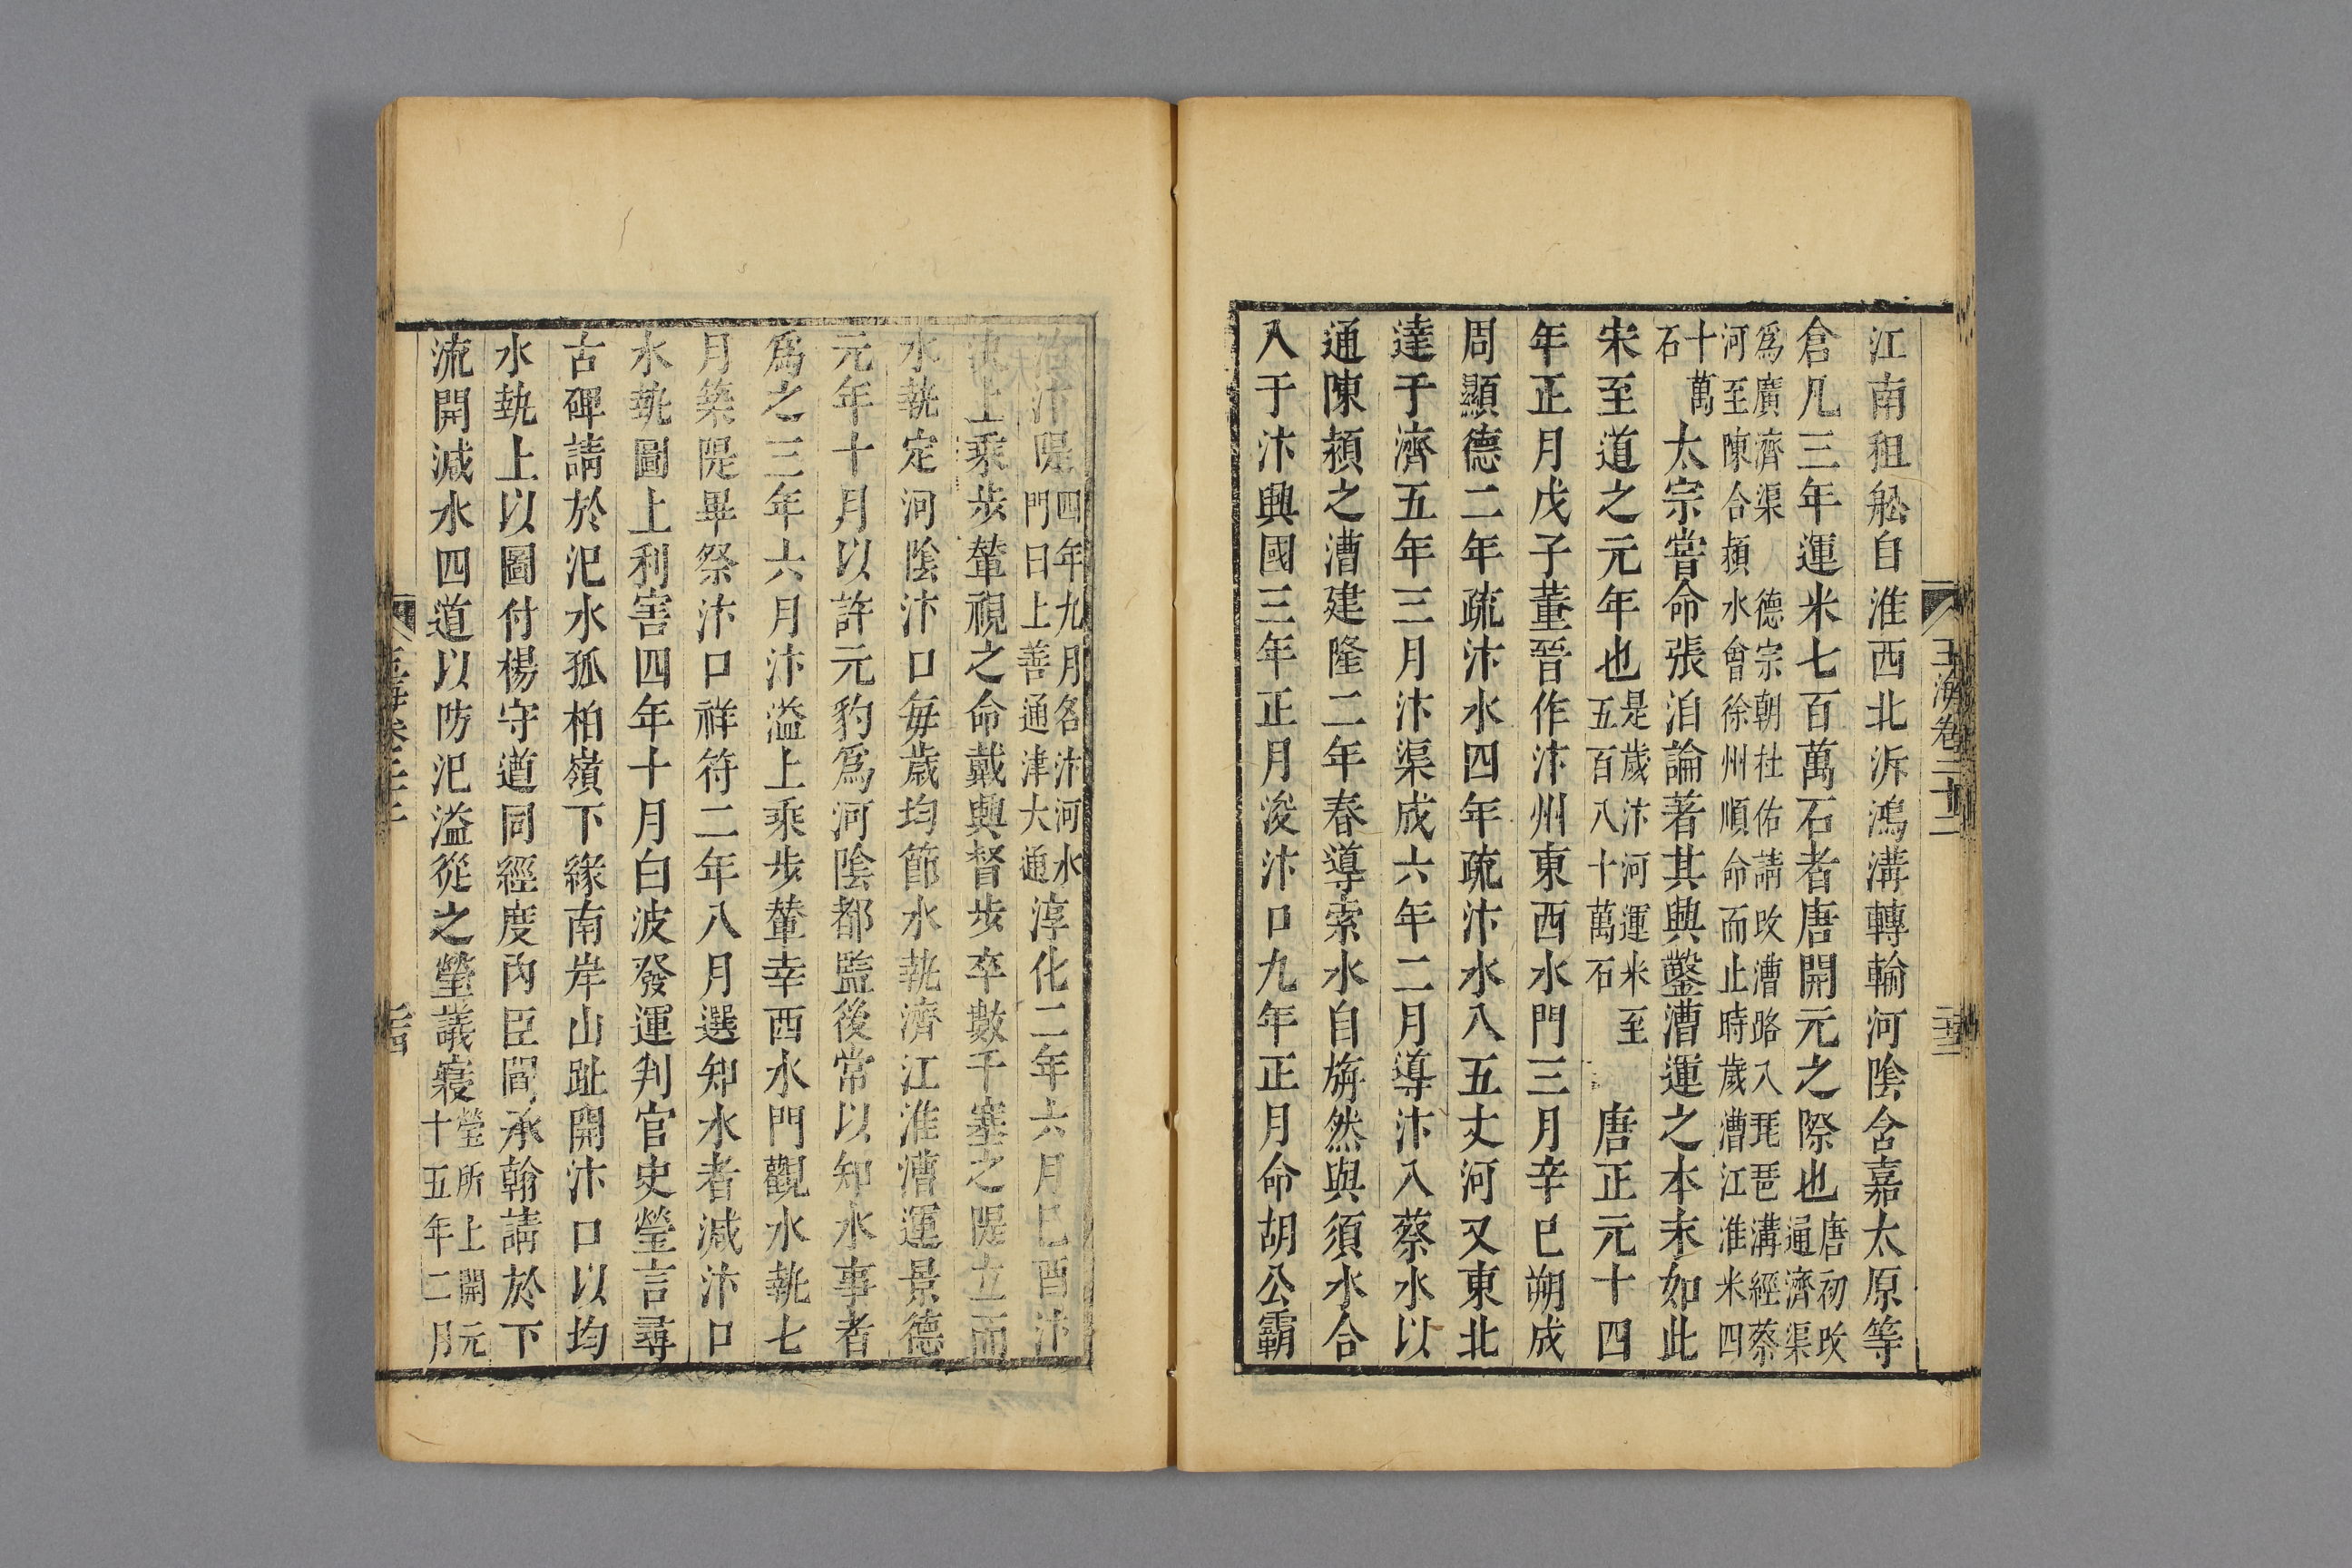 江南租舩自淮西北泝鴻溝轉輸河陰含嘉太原等
倉凡三年運米七百萬石者唐開元之際也唐初改通濟渠
爲廣濟渠德宗朝杜佑請改漕路入琵琶溝經蔡河至陳合潁水會徐州順命而止時歲漕江淮米四
十萬石太宗嘗命張洎論著其興鑿漕運之本末如此
宋至道之元年也是歲汴河運米至五百八十萬石唐正元十四
年正月戊子董晉作汴州東西水門三月辛巳朔成
周顯德二年疏汴水四年疏汴水入五丈河又東北
達于濟五年三月汴渠成六年二月導汴入蔡水以
通陳潁之漕建隆二年春導索水自旃然與須水合
入于汴興國三年正月浚汴口九年正月命胡公霸
治汴隄四年九月名汴河水門曰上善通津大通淳化二年六月巳酉汴
決上乘步輦視之命戴興督步卒數千塞之隄立而
水埶定河陰汴口每歲均節水埶濟江淮漕運景德
元年十月以許元豹爲河陰都監後常以知水事者
爲之三年六月汴溢上乘步輦幸西水門觀水埶七
月築隄畢祭汴口祥符二年八月選知水者減汴口
水埶圖上利害四年十月白波發運判官史瑩言尋
古碑請於汜水孤柏嶺下緣南岸山趾開汴口以均
水埶上以圖付楊守遵同經度內臣閻承翰請於下
流開減水四道以防汜溢從之瑩議寢瑩所上開元十五年二月
玉海卷二十二